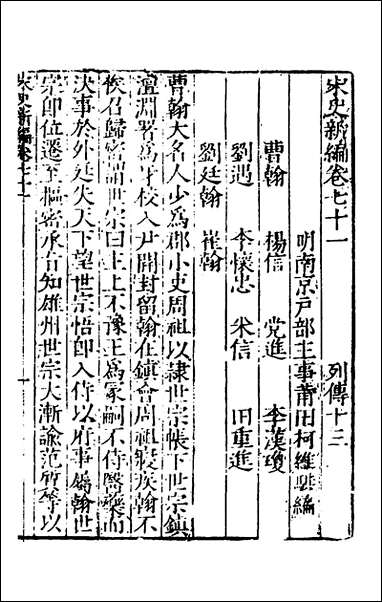 宋史新編卷七十一 列傳十三
明南京戶部主事莆田柯維騏編
曹翰 楊信 党進 李漢瓊
劉遇 李懷忠 米信 田重進
劉廷翰 崔翰
曹翰大名人少爲郡小吏周祖以隸世宗帳下世宗鎮
澶淵署爲牙校入尹開封留翰在鎮會周祖寢疾翰不
俟召歸密謂世宗曰主上不豫王爲冢嗣不侍醫藥而
決事於外廷失天下望世宗悟即入侍以府事屬翰世
宗即位遷至樞密承旨知雄州世宗大漸諭范質等以
宋史新編卷七十一 一